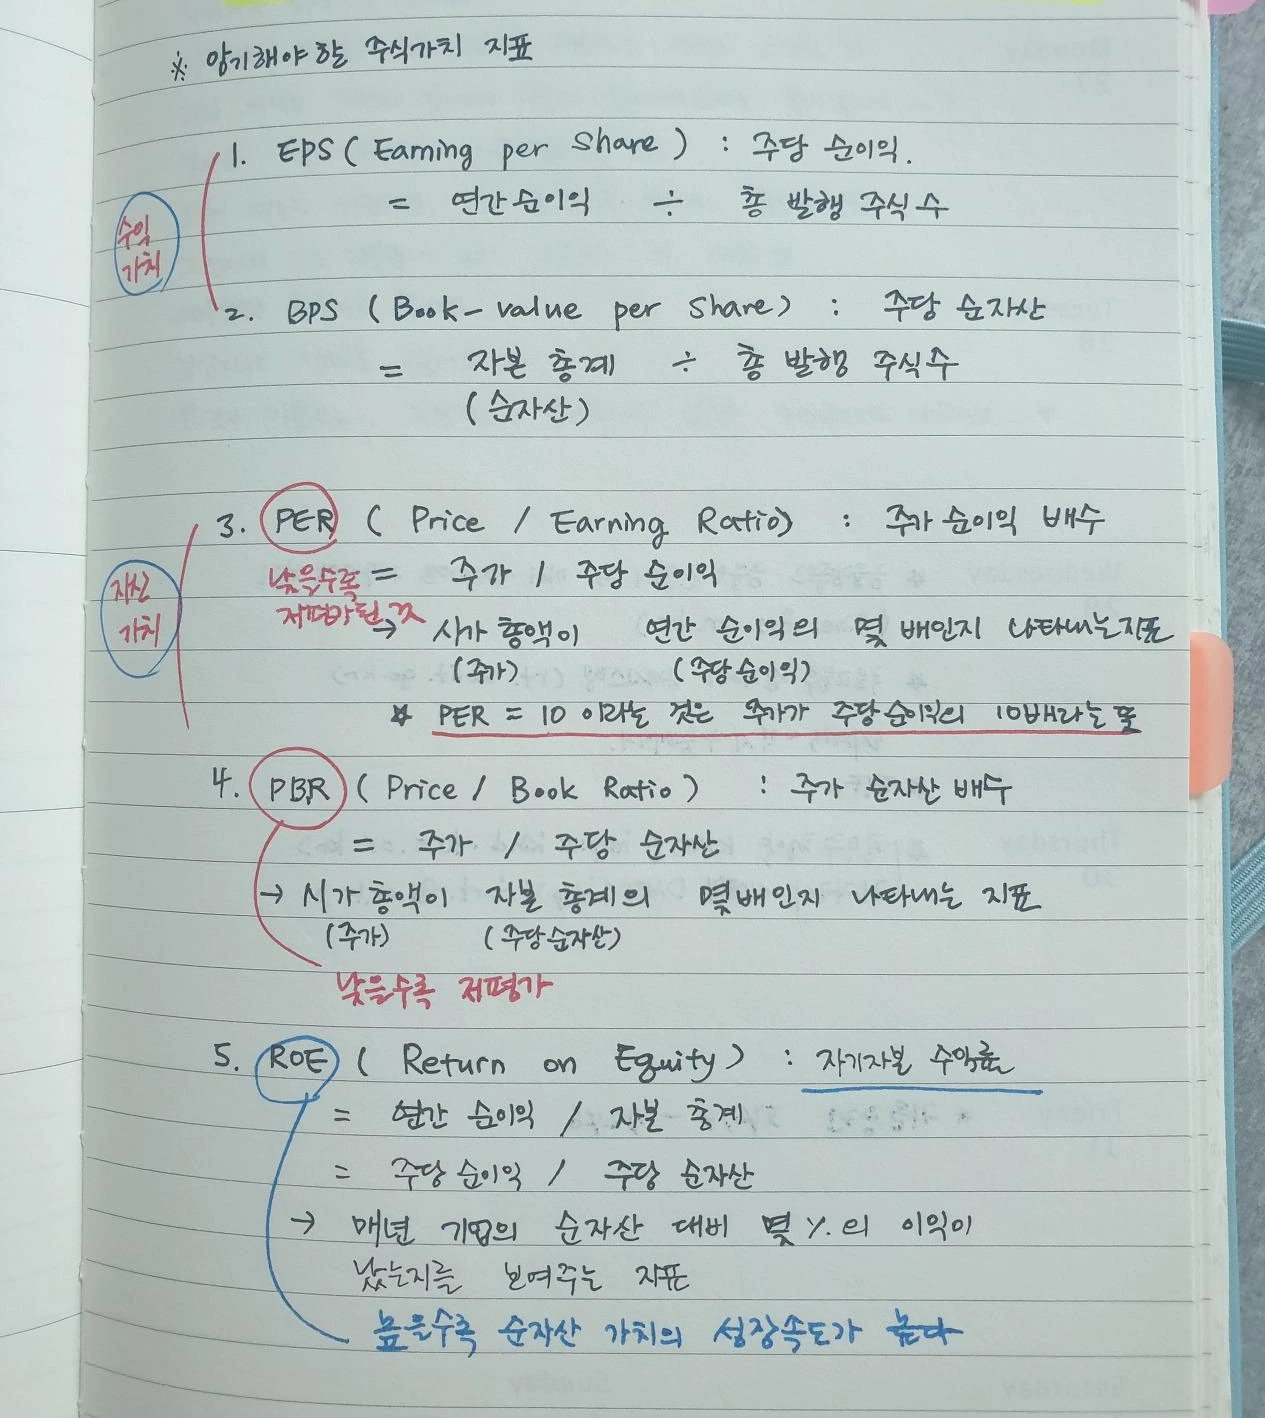 ※ 암기해야 할 주식가치 지표
1. EPS ( Earning per Share ) : 주당 순이익.
= 연간 순이익 ÷ 총 발행 주식 수
수익
가치
2. BPS ( Book-value per Share ) : 주당 순자산
= 자본 총계 ÷ 총 발행 주식수
(순자산)
3. PER ( Price / Earning Ratio) : 주가 순이익 배수
낮을수록 = 주가 / 주당 순이익
저평가된 것
자산
가치
→ 시가 총액이 연간 순이익의 몇 배인지 나타내는 지표
(주가) (주당 순이익)
* PER = 10 이라는 것은 주가가 주당 순이익의 10배라는 뜻
4. PBR ( Price / Book Ratio ) : 주가 순자산 배수
= 주가 / 주당 순자산
→ 시가 총액이 자본 총계의 몇배인지 나타내는 지표
(주가) (주당 순자산)
낮을수록 저평가
5. ROE ( Return on Equity ) : 자기자본 수익률
= 연간 순이익 / 자본 총계
= 주당 순이익 / 주당 순자산
→ 매년 기업의 순자산 대비 몇 %의 이익이
났는지를 보여주는 지표
높을수록 순자산 가치의 성장속도가 높다